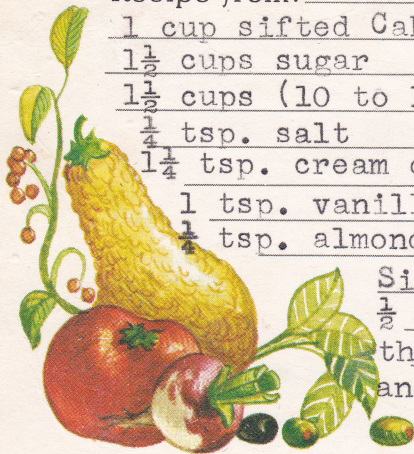 Recipe from:
1 cup sifted Ca
1½ cups sugar
1½ cups (10 to
¼ tsp. salt
1¼ tsp. cream
1 tsp. vanill
¼ tsp. almond
Si
½
th
an